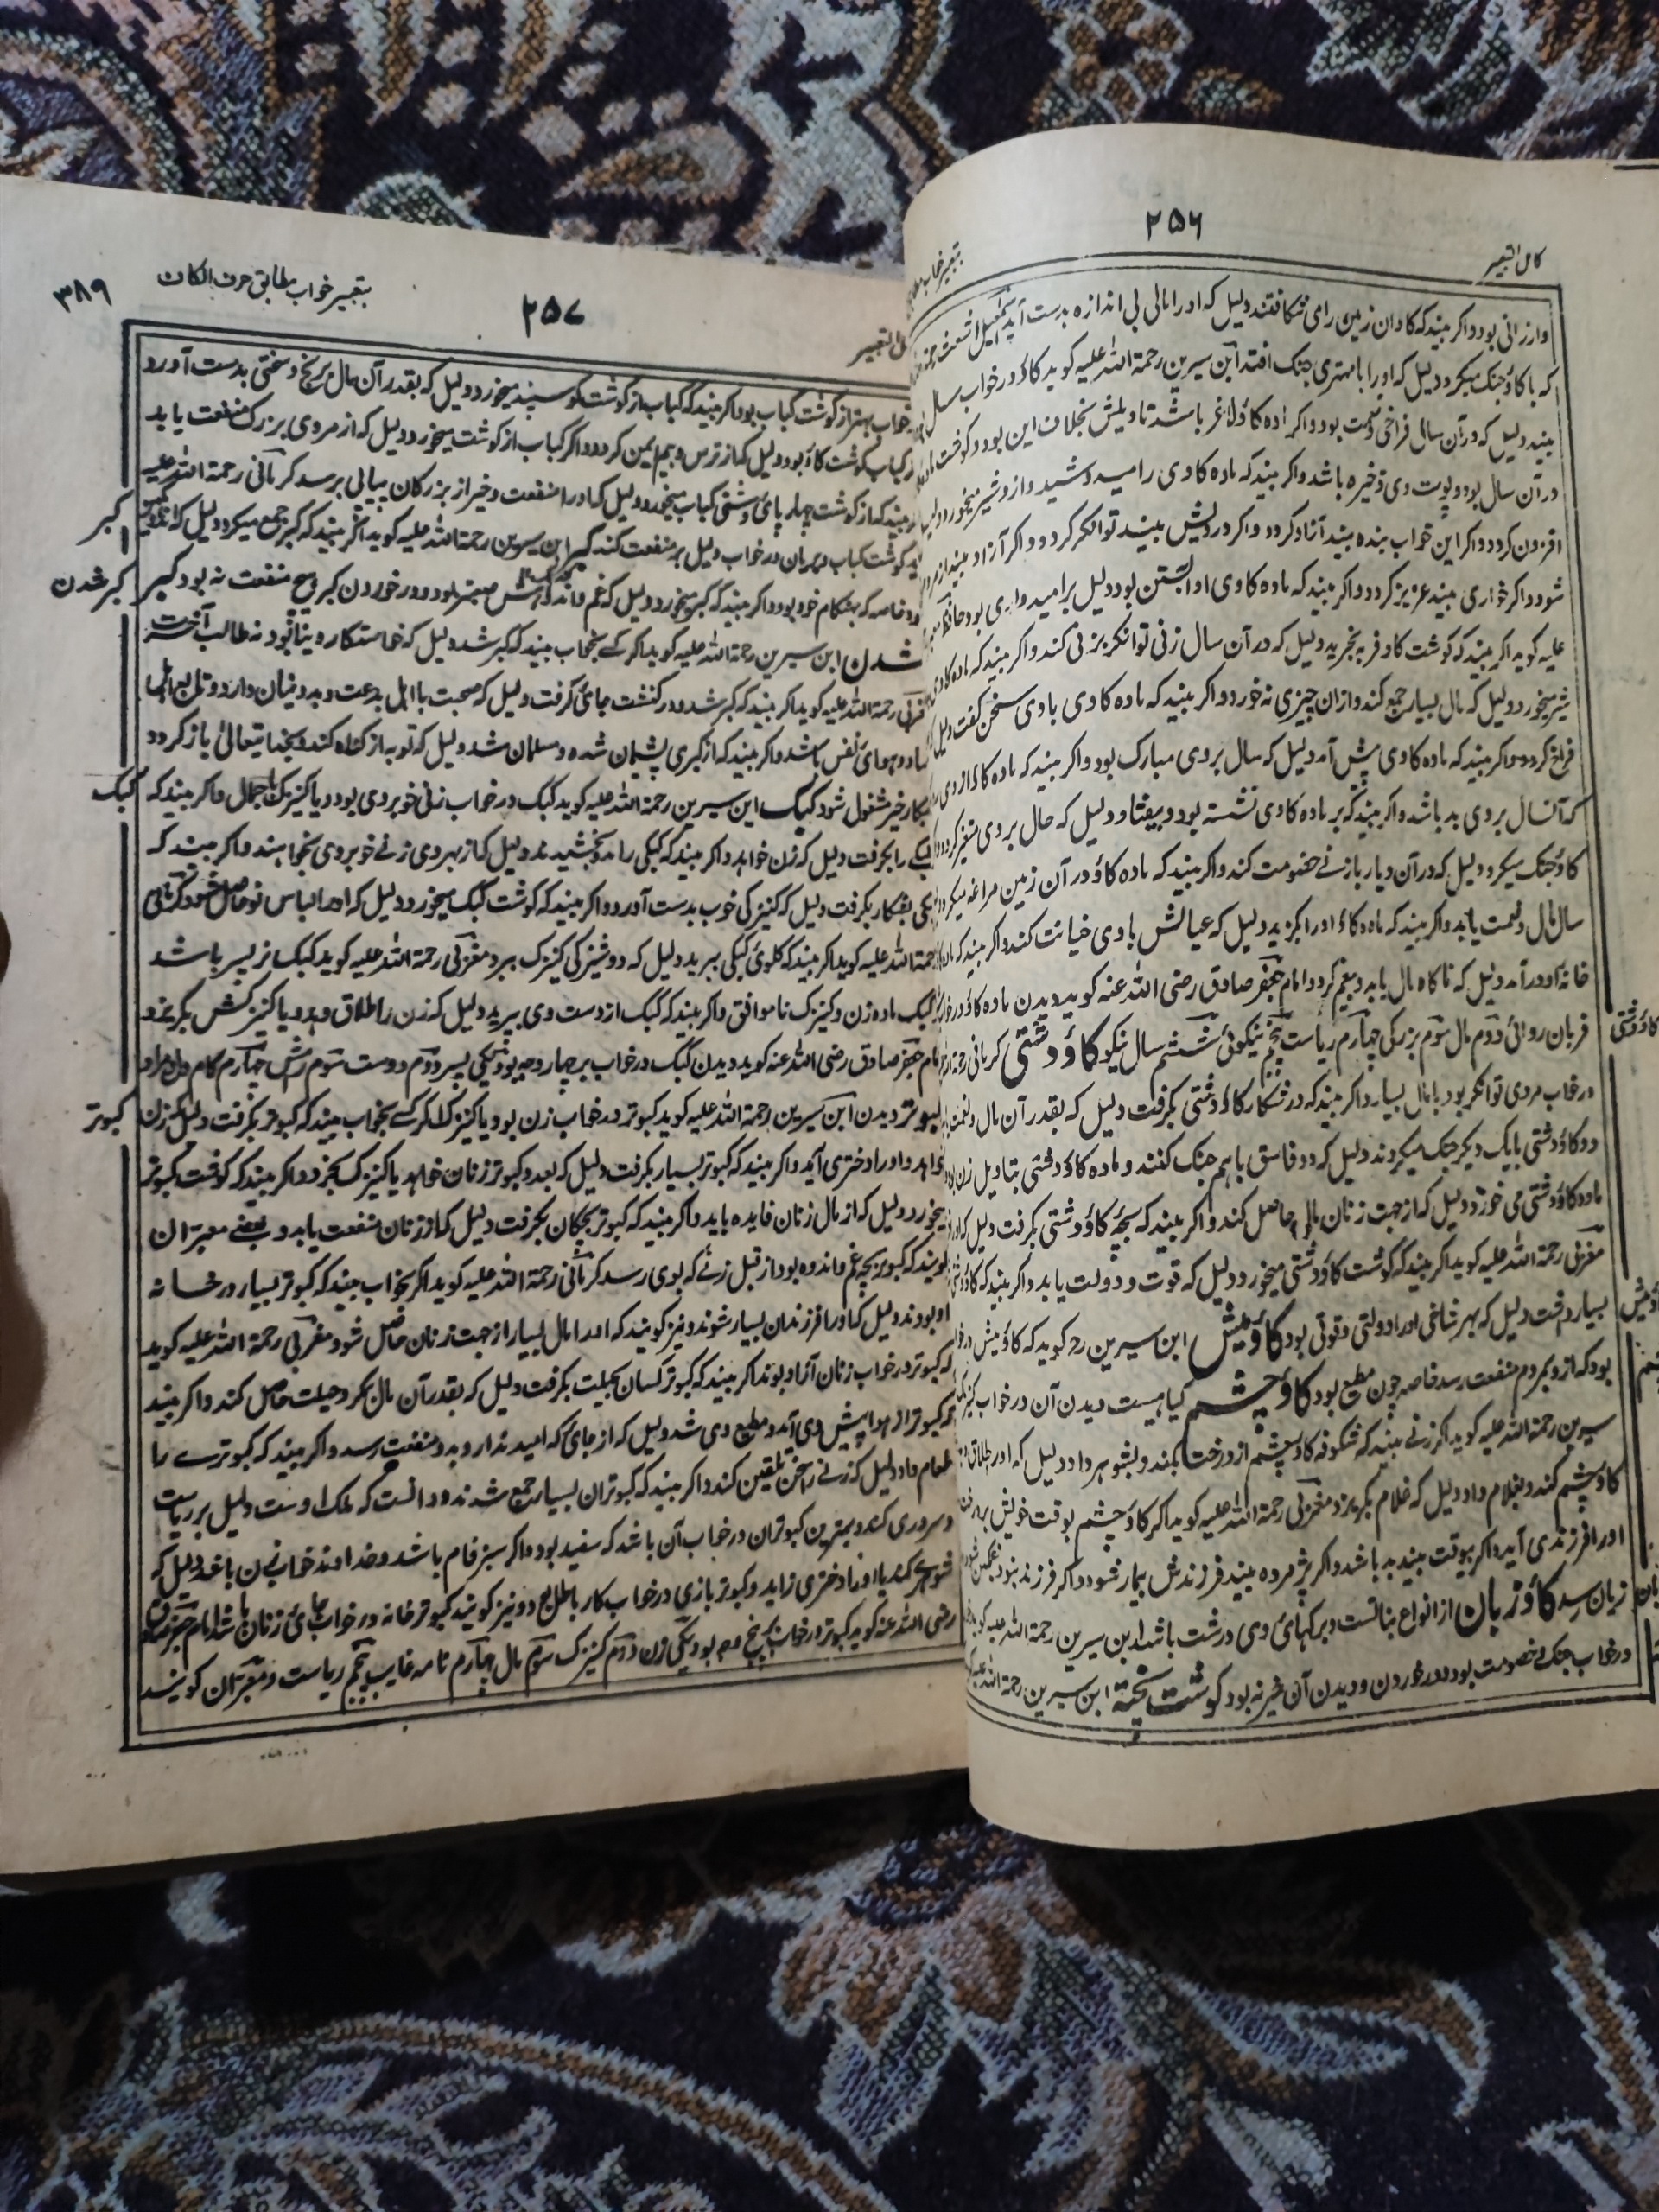 ۲۵۶
کامل التعبیر
وارزانی بود و اکر بیند که کاوان زمین را می شکافتند دلیل که او را مالی بی اندازه بدست آید
که با کاو جنک میکرد دلیل که او را با مهتری جنک افتد ابن سیرین رحمة الله علیه کوید کاو در خواب سال
بیند دلیل که در آن سال فراخی و نعمت بود و اکر ماده کاو لاغر باشد تاویلش بخلاف این بود و کوشت
در آن سال بود و پوست وی ذخیره باشد و اکر بیند که ماده کاوی را میدوشید و از و شیر میخورد
افزون کردد و اکر این خواب بنده بیند آزاد کردد و اکر درویش بیند توانکر کردد و اکر آزاد بیند
شود و اکر خواری بیند عزیز کردد و اکر بیند که ماده کاوی او آبستن بود دلیل بر امیدواری بود حافظ
علیه کوید اکر بیند که کوشت کاو فربه بخرید دلیل که در آن سال زنی توانکر بزنی کند و اکر بیند که ماده کاوی
شیر میخورد دلیل که مال بسیار جمع کند و ازان چیزی نه خورد و اکر بیند که ماده کاوی با وی سخن کفت دلیل
فراخ کردد و اکر بیند که ماده کاوی پیش آمد دلیل که سال بر وی مبارک بود و اکر بیند که ماده کاو از وی
که آنسال بر وی بد باشد و اکر بیند که بر ماده کاوی نشسته بود و بیفتاد دلیل که حال بر وی متغیر کردد
کاو جنک میکرد دلیل که در آن دیار با زنی خصومت کند و اکر بیند که ماده کاو در آن زمین مراغه میکرد
سال مال و نعمت یابد و اکر بیند که ماده کاو او را بکزید دلیل که عیالش با وی خیانت کند و اکر بیند که
خانه او درآمد دلیل که ناکاه مال یابد و بیغم کردد امام جعفر صادق رضی الله عنه کوید دیدن ماده کاو در
فرمان روائی دوم مال سوم بزرکی چهارم ریاست پنجم نیکوئی ششم سال نیکو کاو دشتی کرمانی
در خواب مردی توانکر بود با مال بسیار و اکر بیند که در شکار کاو دشتی بکرفت دلیل که بقدر آن مال و نعمت
دو کاو دشتی با یک دیکر جنک میکردند دلیل که دو فاسق باهم جنک کنند و ماده کاو دشتی بتاویل زن
ماده کاو دشتی می خورد دلیل که از جهت زنان مالی حاصل کند و اکر بیند که بچه کاو دشتی بکرفت دلیل که
مغربی رحمة الله علیه کوید اکر بیند که کوشت کاو دشتی میخورد دلیل که قوت و دولت یابد و اکر بیند که کاو
بسیار داشت دلیل که بهر شاخی او را دولتی و قوتی بود کاومیش ابن سیرین رح کوید که کاومیش
بود که ازو بمردم منفعت رسد خاصه چون مطیع بود کاوچشم کیاهیست دیدن آن در خواب
سیرین رحمة الله علیه کوید اکر زنی بیند که شکوفه کاوچشم از درخت بکند و بشوهر داد دلیل که او را طلاق
کاوچشم کند و بغلام داد دلیل که غلام بکریزد مغربی رحمة الله علیه کوید اکر کاوچشم بوقت خویش
او را فرزندی آید و اکر بیوقت بیند بد باشد و اکر پژمرده بیند فرزندش بیمار شود و اکر فرزند بنود
زیان رسد کاو زبان از انواع بناتست و برکهای وی درشت باشد ابن سیرین رحمة الله علیه کوید
در خواب جنک و خصومت بود در خوردن و دیدن آن خیر نه بود کوشت پخته ابن سیرین رحمة الله علیه
کاو دشتی
۳۸۹
تعبیر خواب مطابق حرف الکاف
۲۵۷
خواب بهتر از کوشت کباب بود اکر بیند که کباب از کوشت کوسپند میخورد دلیل که بقدر آن مال برنج و سختی بدست آورد
کباب کوشت کاو بود دلیل که از ترس و بیم ایمن کردد و اکر کباب از کوشت میخورد دلیل که از مردی بزرک منفعت یابد
بیند که از کوشت چهار پای دشتی کباب میخورد دلیل که او را منفعت و خیر از بزرکان بیابانی برسد کرمانی رحمة الله علیه
کوشت کباب و بریان در خواب دلیل بر منفعت کند کبر ابن سیرین رحمة الله علیه کوید اکر بیند که کبر جمع میکرد دلیل که
خاصه که بهنکام خود بود و اکر بیند که کبر میخورد دلیل که غم و اندوه و در خوردن کبر هیچ منفعت نه بود کبر
شدن ابن سیرین رحمة الله علیه کوید اکر کسے بخواب بیند که کبر شد دلیل که خواستکار دنیا بود نه طالب آخرت
رحمة الله علیه کوید اکر بیند که کبر شد و در کنشت جای کرفت دلیل که صحبت با اهل بدعت و بد دینان دارد و تابع
و هوای نفس باشد و اکر بیند که از کبری پشیمان شده و مسلمان شد دلیل که توبه از کناه کند و بخدایتعالی باز کردد
بکار خیر مشغول شود کبک ابن سیرین رحمة الله علیه کوید کبک در خواب زنی خوبروی بود و یا کنیزک با جمال و اکر بیند که
کبکے را بکرفت دلیل که زن خواهد و اکر بیند که کبکی را بدو بخشیدند دلیل که از بهر وی زنے خوبروی بخواهند و اکر بیند که
کبکی بشکار بکرفت دلیل که کنیزکی خوب بدست آورد و اکر بیند که کوشت کبک میخورد دلیل که او را لباس نو حاصل شود کرمانی
رحمة الله علیه کوید اکر بیند که کلوی کبکی ببرید دلیل که دوشیزکی کنیزک ببرد مغربی رحمة الله علیه کوید کبک نر پسر باشد
کبک ماده زن و کنیزک ناموافق و اکر بیند که کبک از دست وی بپرید دلیل که زن را طلاق دهد و یا کنیزکش بکریزد
امام جعفر صادق رضی الله عنه کوید دیدن کبک در خواب بر چهار وجه بود یکی پسر دوم دوست سوم چهارم کام دل
کبوتر دیدن ابن سیرین رحمة الله علیه کوید کبوتر در خواب زن بود و یا کنیزک اکر کسے بخواب بیند که کبوتر بکرفت دلیل که زن
خواهد و او را دختری آید و اکر بیند که کبوتر بسیار بکرفت دلیل که بعدد کبوتر زنان خواهد یا کنیزک بخرد و اکر بیند که کوشت کبوتر
میخورد دلیل که از مال زنان فایده یابد و اکر بیند که کبوتر بچکان بکرفت دلیل که از زنان منفعت یابد و بعضے معبران
کویند که کبوتر بچه غم و اندوه بود از قبل زنے که بوی رسد کرمانی رحمة الله علیه کوید اکر بخواب بیند که کبوتر بسیار در خانه
او بودند دلیل که او را فرزندان بسیار شوند و نیز کویند که او را مال بسیار از جهت زنان حاصل شود مغربی رحمة الله علیه کوید
که کبوتر در خواب زنان آزاد بود و اکر بیند که کبوتر کسان بحیلت بکرفت دلیل که بقدر آن مال بمکر و حیلت حاصل کند و اکر بیند
که کبوتر از هوا پیش وی آمد و مطیع وی شد دلیل که از جای که امید ندارد بدو منفعت رسد و اکر بیند که کبوترے را
طعام داد دلیل که زنے را سخن تلقین کند و اکر بیند که کبوتران بسیار جمع شدند و دانست که ملک اوست دلیل بر ریاست
و سروری کند و بهترین کبوتران در خواب آن باشد که سفید بود و اکر سبز فام باشد و خداوند خواب زن باشد دلیل که
شوهر کند یا او را دختری زاید و کبوتر بازی در خواب کار باطل بود و نیز کویند کبوتر خانه در خواب جای زنان باشد امام جعفر صادق
رضی الله عنه کوید کبوتر در خواب بر پنج وجه بود یکی زن دوم کنیزک سوم مال چهارم نامه غایب پنجم ریاست و معبران کویند
کبر
کبر شدن
کبک
کبوتر